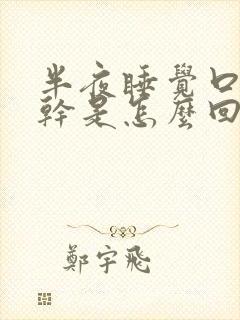 半夜睡覺口
幹是怎麼回
鄭宇飛